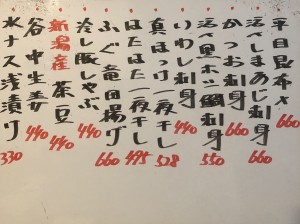 平目昆布〆 660
活〆しまあじ刺身 660
かつお刺身 660
活〆黒ホシ鯛刺身 550
いわし刺身 440
真ほっけ一夜干し 528
はたはた一夜干し 495
ふぐ竜田揚げ 660
冷し豚しゃぶ 440
新潟産 茶豆 440
谷中生姜 440
水ナス浅漬け 330